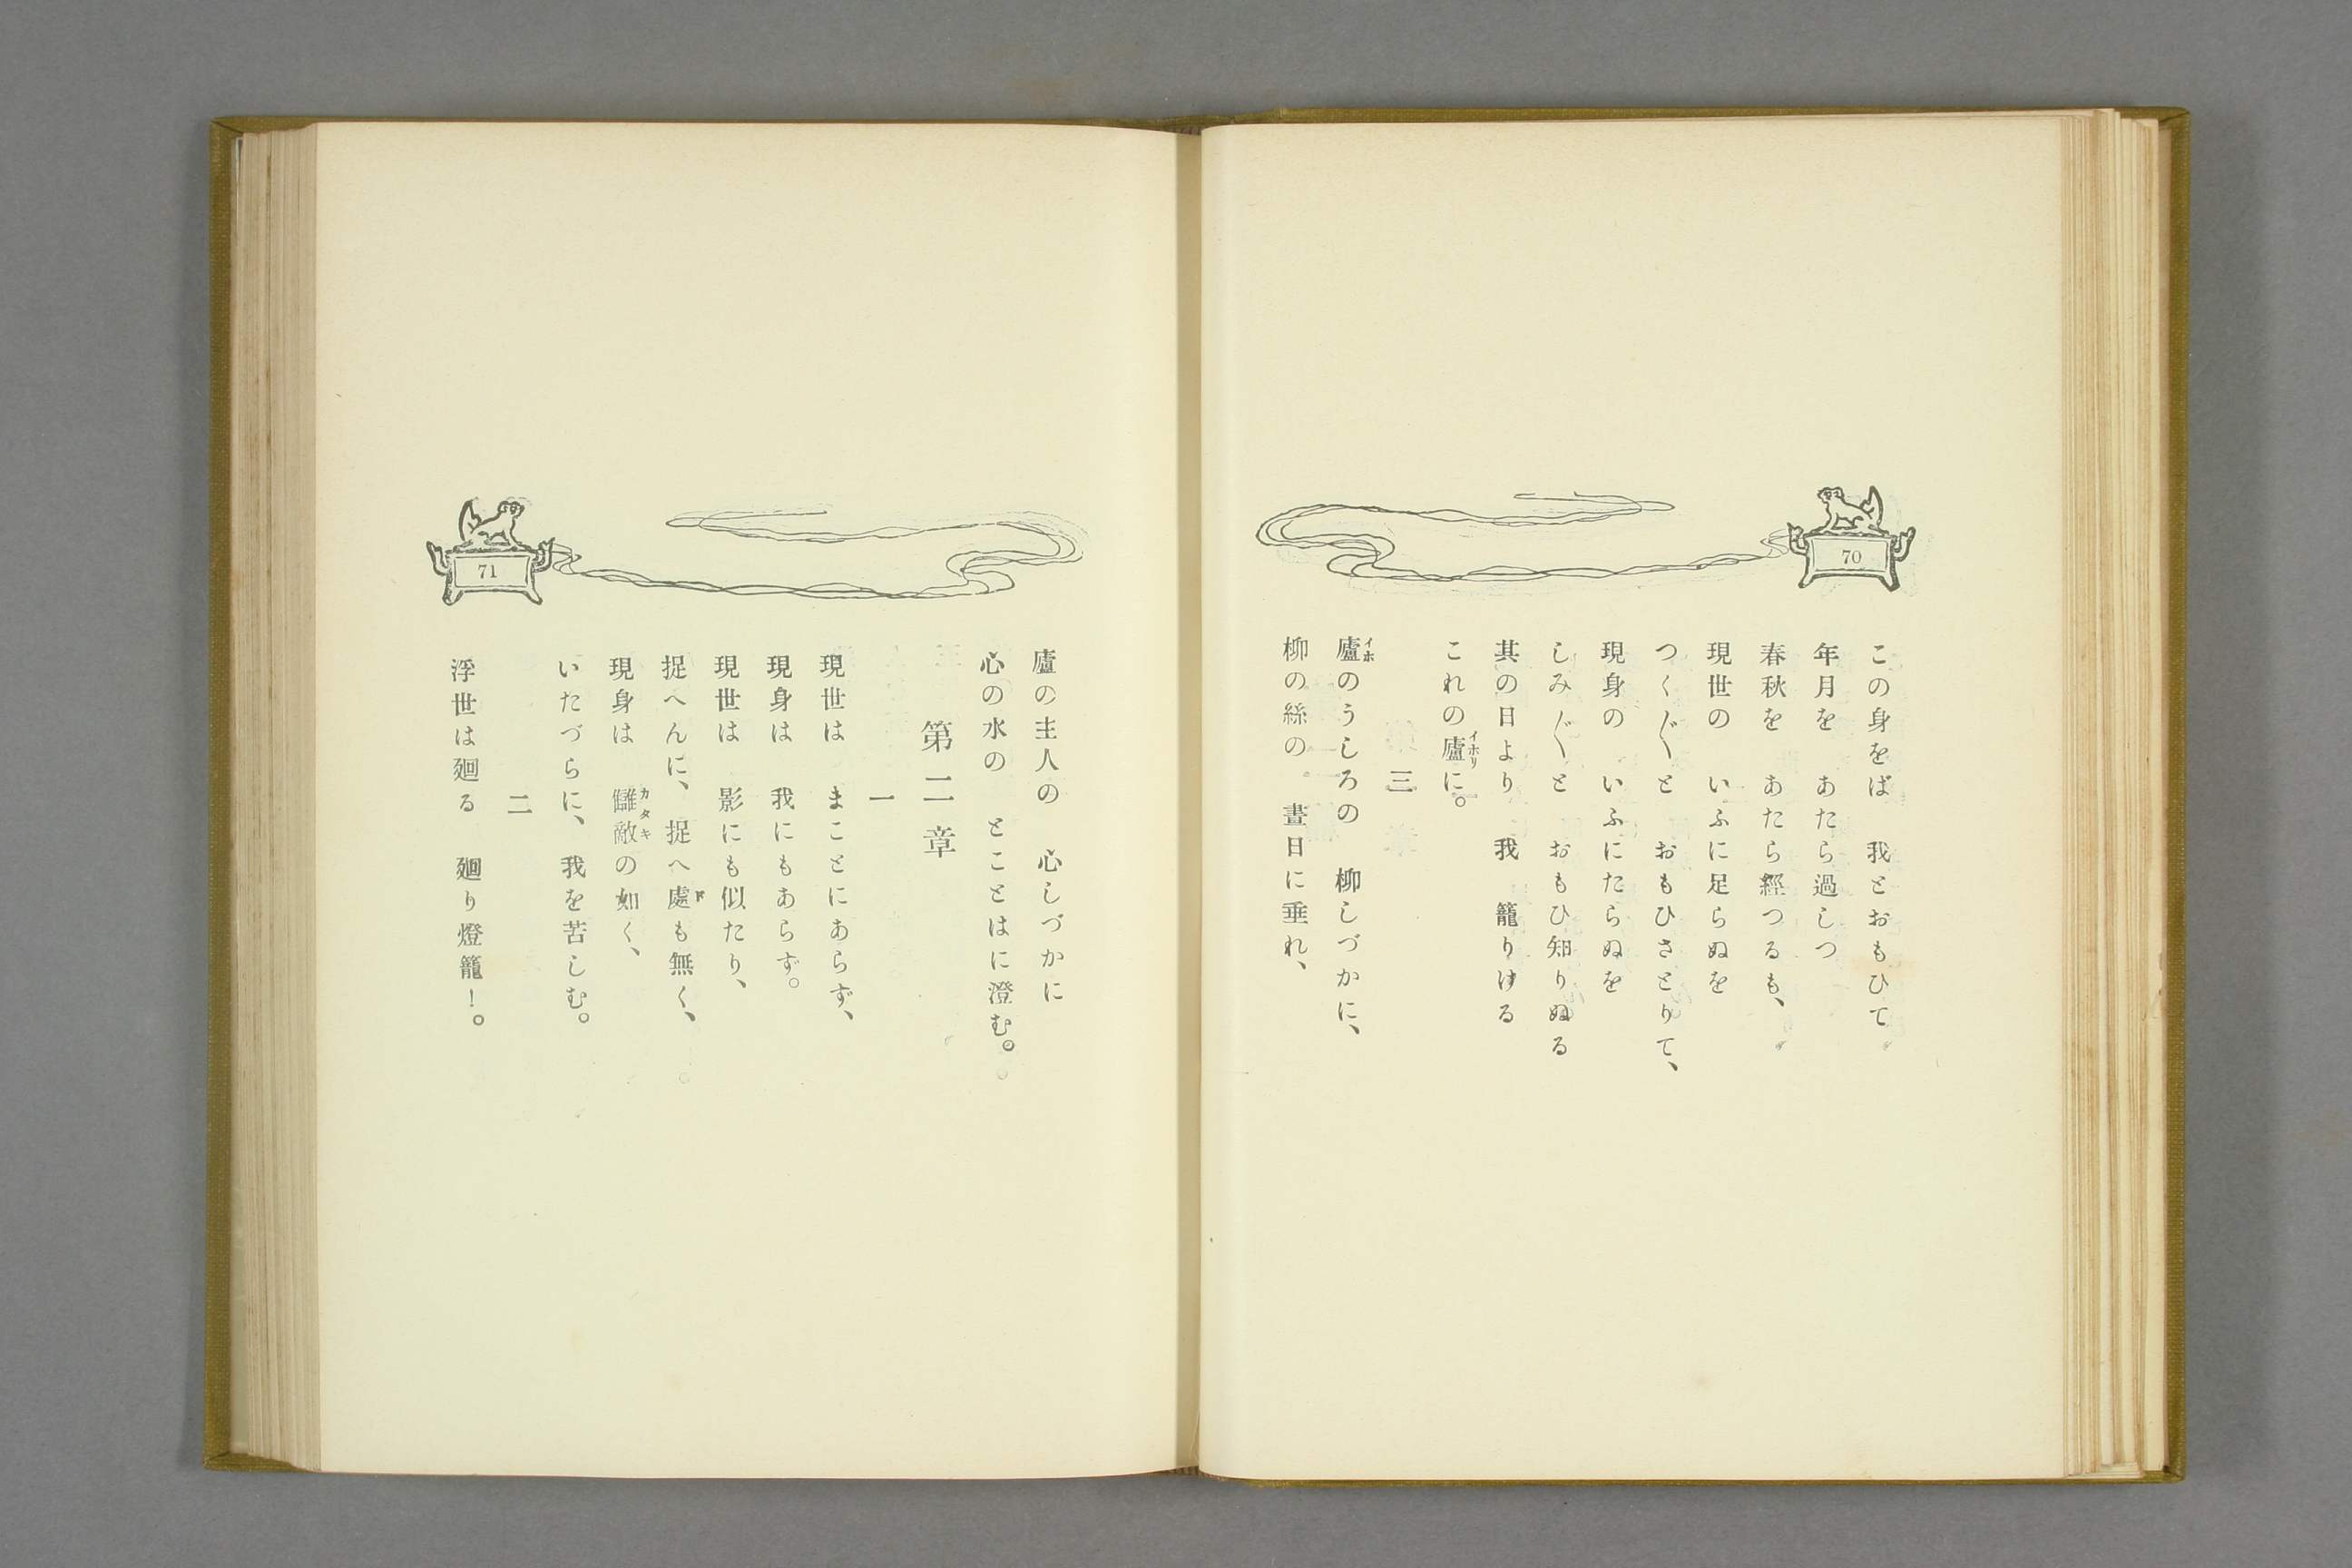 70
この身をば　我とおもひて
年月を　あたら過しつ
春秋を　あたら經つるも、
現世の　いふに足らぬを
つく〴〵と　おもひさとりて、
現身の　いふにたらぬを
しみ〴〵と　おもひ知りぬる
其の日より　我　籠りける
これの廬に。
イホリ
三
廬のうしろの　柳しづかに、
イホ
柳の絲の　晝日に垂れ、
71
廬の主人の　心しづかに
心の水の　とことはに澄む。
第二章
一
現世は　まことにあらず、
現身は　我にもあらず。
現世は　影にも似たり、
捉へんに、捉へ處も無く、
ド
現身は　讎敵の如く、
カタキ
いたづらに、我を苦しむ。
二
浮世は廻る　廻り燈籠！。